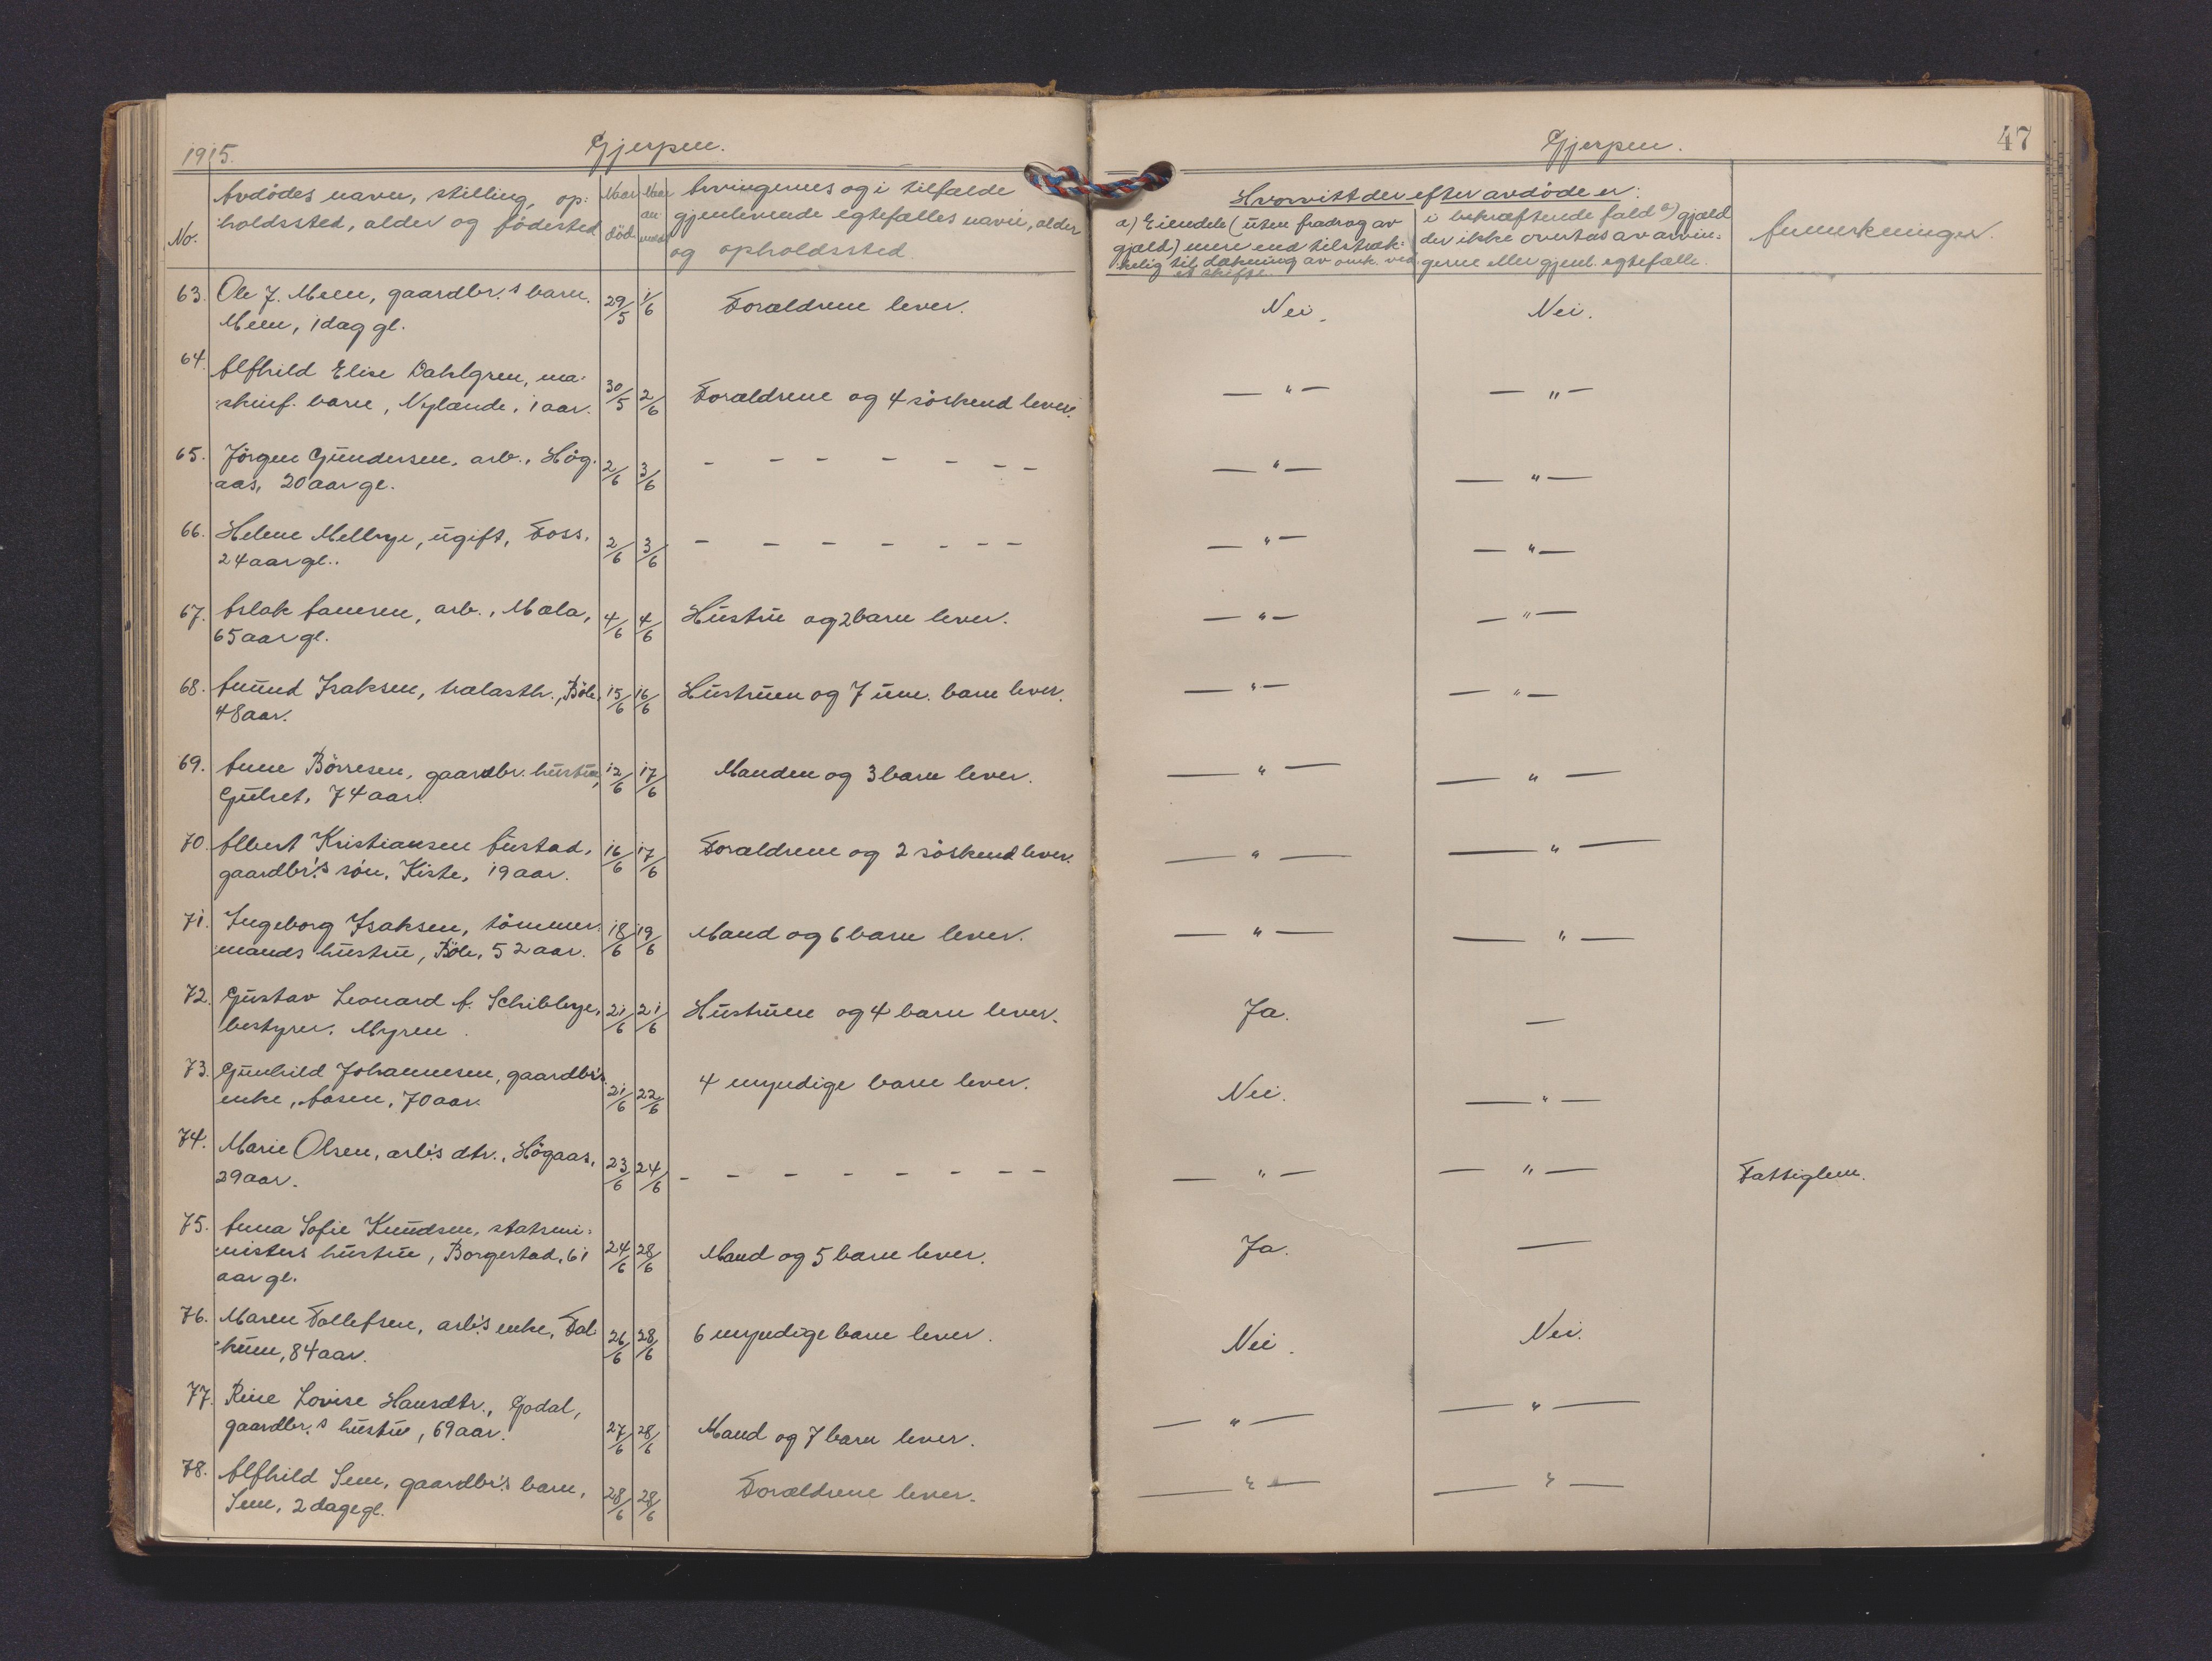 1915. Gjerpen.
No. Avdødes navn, stilling, op-
holdssted, alder og fødested
Naar død
Naar an meldt
Arvingernes og i tilfælde
gjenlevende egtefælles navn, alder
og opholdssted.
63. Ole J. Meen, gaardbr.s barn. 29/5 1/6 Forældrene lever.
Meen, 1 dag gl.
64. Alfhild Elise Dahlgren, ma-
skinf. barn, Nylænde, 1 aar. 30/5 2/6 Forældrene og 4 søskend lever.
65. Jörgen Gundersen, arb., Hög- 2/6 3/6 – – – – – – –
aas, 20 aar gl.
66. Helene Mellbye, ugift, Foss, 2/6 3/6 – – – – – – –
24 aar gl..
67. Aslak Aamsen, arb., Mæla, 4/6 4/6 Hustru og 2 barn lever.
65 aar gl.
68. Amund Isaksen, trælasth., Böle, 15/6 16/6 Hustruen og 7 um. barn lever.
48 aar.
69. Anne Börresen, gaardbr. hustru, 12/6 17/6 Manden og 3 barn lever.
Gulset, 74 aar.
70. Albert Kristiansen Austad, 16/6 17/6 Forældrene og 2 söskend lever.
gaardbr.'s sön, Kiste, 19 aar.
71. Ingeborg Isaksen, tömmer- 18/6 19/6 Mand og 6 barn lever.
mands hustru, Böle, 52 aar.
72. Gustav Leonard A. Schibbye, 21/6 21/6 Hustruen og 4 barn lever.
bestyrer, Myren.
73. Gunhild Johannesen, gaardbr's 21/6 22/6 4 myndige barn lever.
enke, Aasen, 70 aar.
74. Marie Olsen, arb.'s dtr., Högaas, 23/6 24/6 – – – – – – – –
29 aar.
75. Anna Sofie Knudsen, statsmi-
nisters hustru, Borgestad, 61 24/6 28/6 Mand og 5 barn lever.
aar gl.
76. Maren Tollefsen, arb.'s enke, Fal- 26/6 28/6 6 myndige barn lever.
kum, 84 aar.
77. Rine Lovise Hansdtr., Godal,
gaardbr.s hustru, 69 aar. 27/6 28/6 Mand og 7 barn lever.
78. Alfhild Sem, gaardbr.'s barn, 28/6 28/6 Forældrene lever.
Sem, 2 dage gl.
Gjerpen. 47
Hvorvidt der efter avdöde er:
a) Eiendele (uten fradrag av
gjæld) mere end tilstræk-
kelig til dækning av omk. ved
et skifte
i bekræftende fald a) gjæld
der ikke overtas av arvin-
gerne eller gjenl. egtefælle.
Anmerkninger.
Nei. Nei.
— " — — " —
— " — — " —
— " — — " —
— " — — " —
— " — — " —
— " — — " —
— " — — " —
— " — — " —
Ja. —
Nei. — " —
— " — — " — Fattiglem.
Ja. —
Nei. Nei.
— " — — " —
— " — — " —